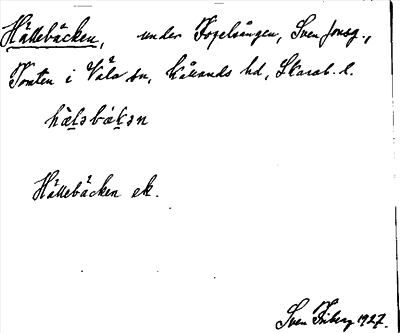 Hällebäcken, under Fogelsången, Sven Jonsg.,
Tomten i Våla sn, Kåkinds hd, Skarab. l.
Hällebäcken ek.
Sven Friberg 1927.